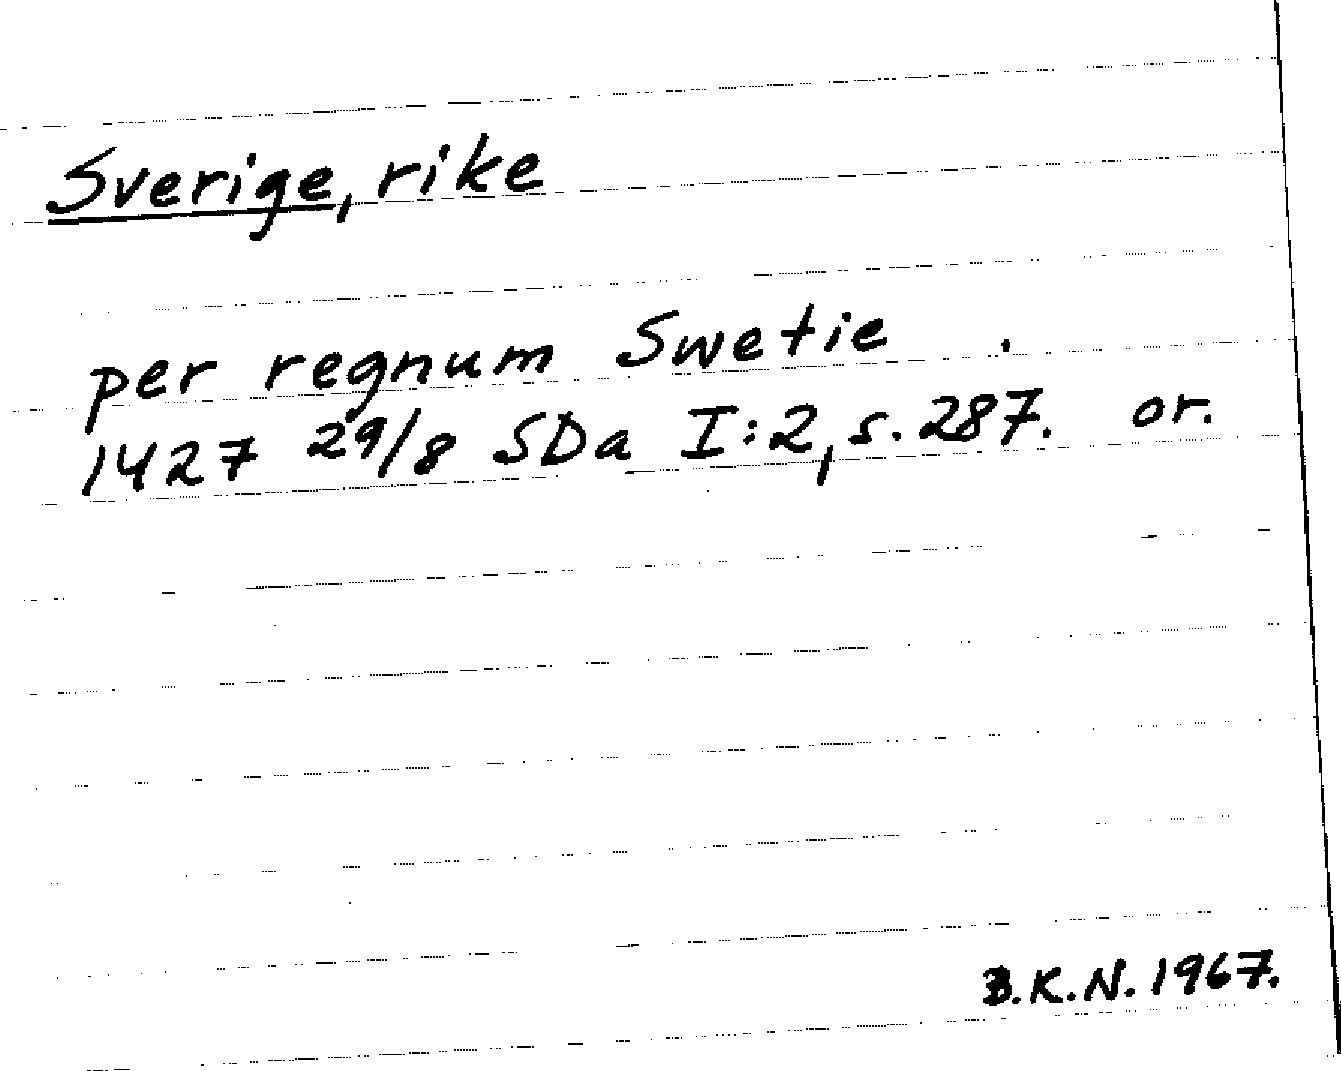 Sverige, rike
per regnum Swetie .
1427 29/8 SDa I:2, s. 287. or.
B.K.N. 1967.